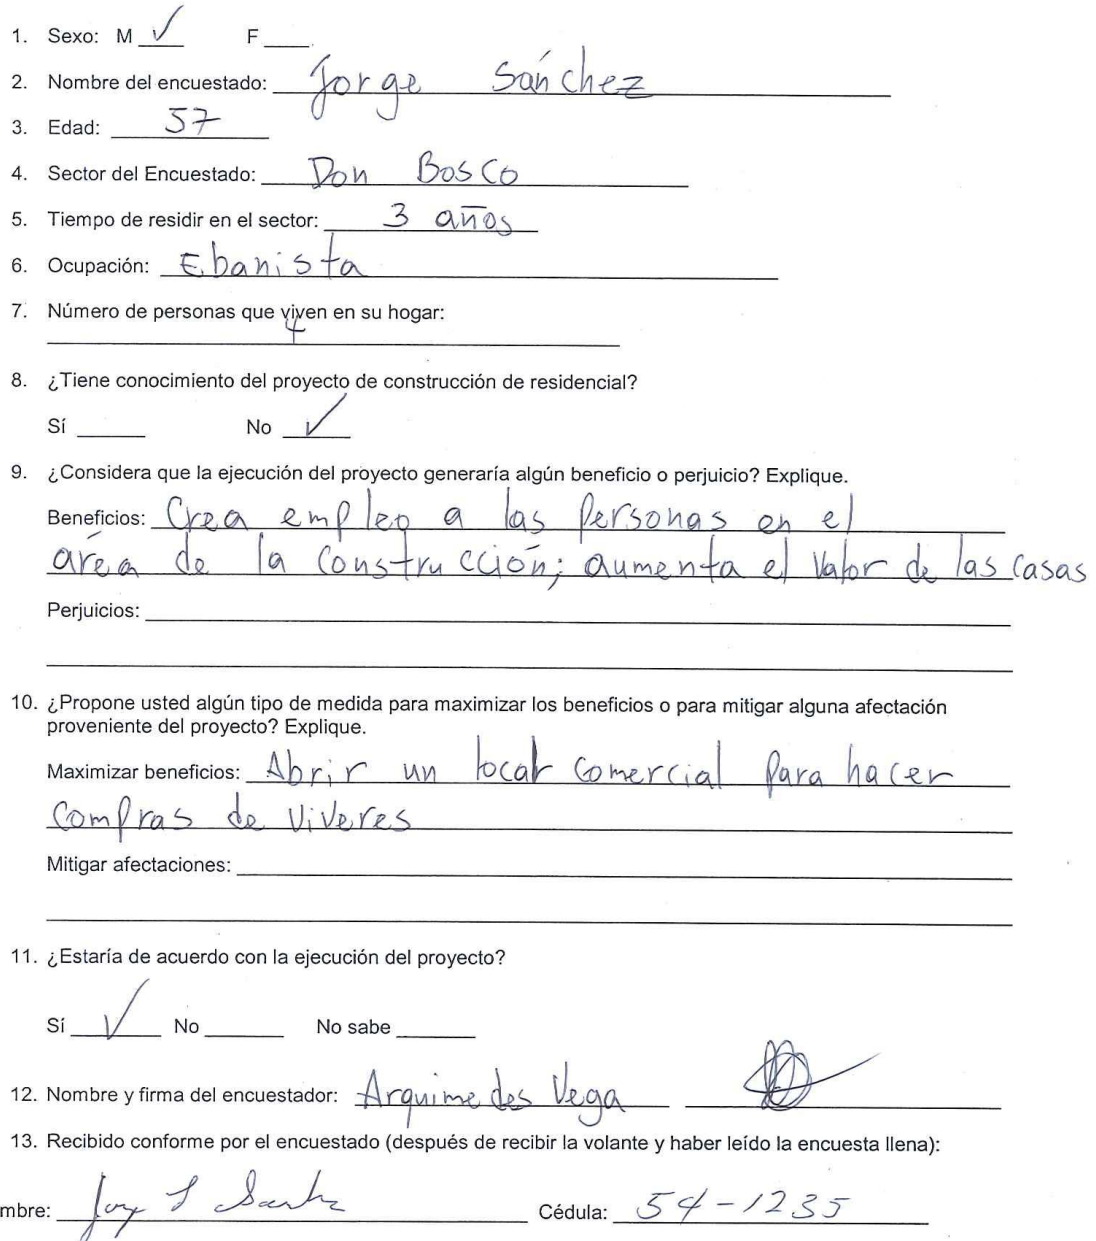 1. Sexo: M ✓ F ____
2. Nombre del encuestado: Jorge Sánchez
3. Edad: 57
4. Sector del Encuestado: Don Bosco
5. Tiempo de residir en el sector: 3 años
6. Ocupación: Ebanista
7. Número de personas que viven en su hogar:
4
8. ¿Tiene conocimiento del proyecto de construcción de residencial?
Sí ____ No ✓
9. ¿Considera que la ejecución del proyecto generaría algún beneficio o perjuicio? Explique.
Beneficios: Crea empleo a las personas en el
área de la construcción; aumenta el valor de las casas
Perjuicios:
10. ¿Propone usted algún tipo de medida para maximizar los beneficios o para mitigar alguna afectación
proveniente del proyecto? Explique.
Maximizar beneficios: Abrir un local comercial para hacer
compras de viveres
Mitigar afectaciones:
11. ¿Estaría de acuerdo con la ejecución del proyecto?
Sí ✓ No ____ No sabe ____
12. Nombre y firma del encuestador: Arquimedes Vega
13. Recibido conforme por el encuestado (después de recibir la volante y haber leído la encuesta llena):
mbre: Cédula: 54-1235